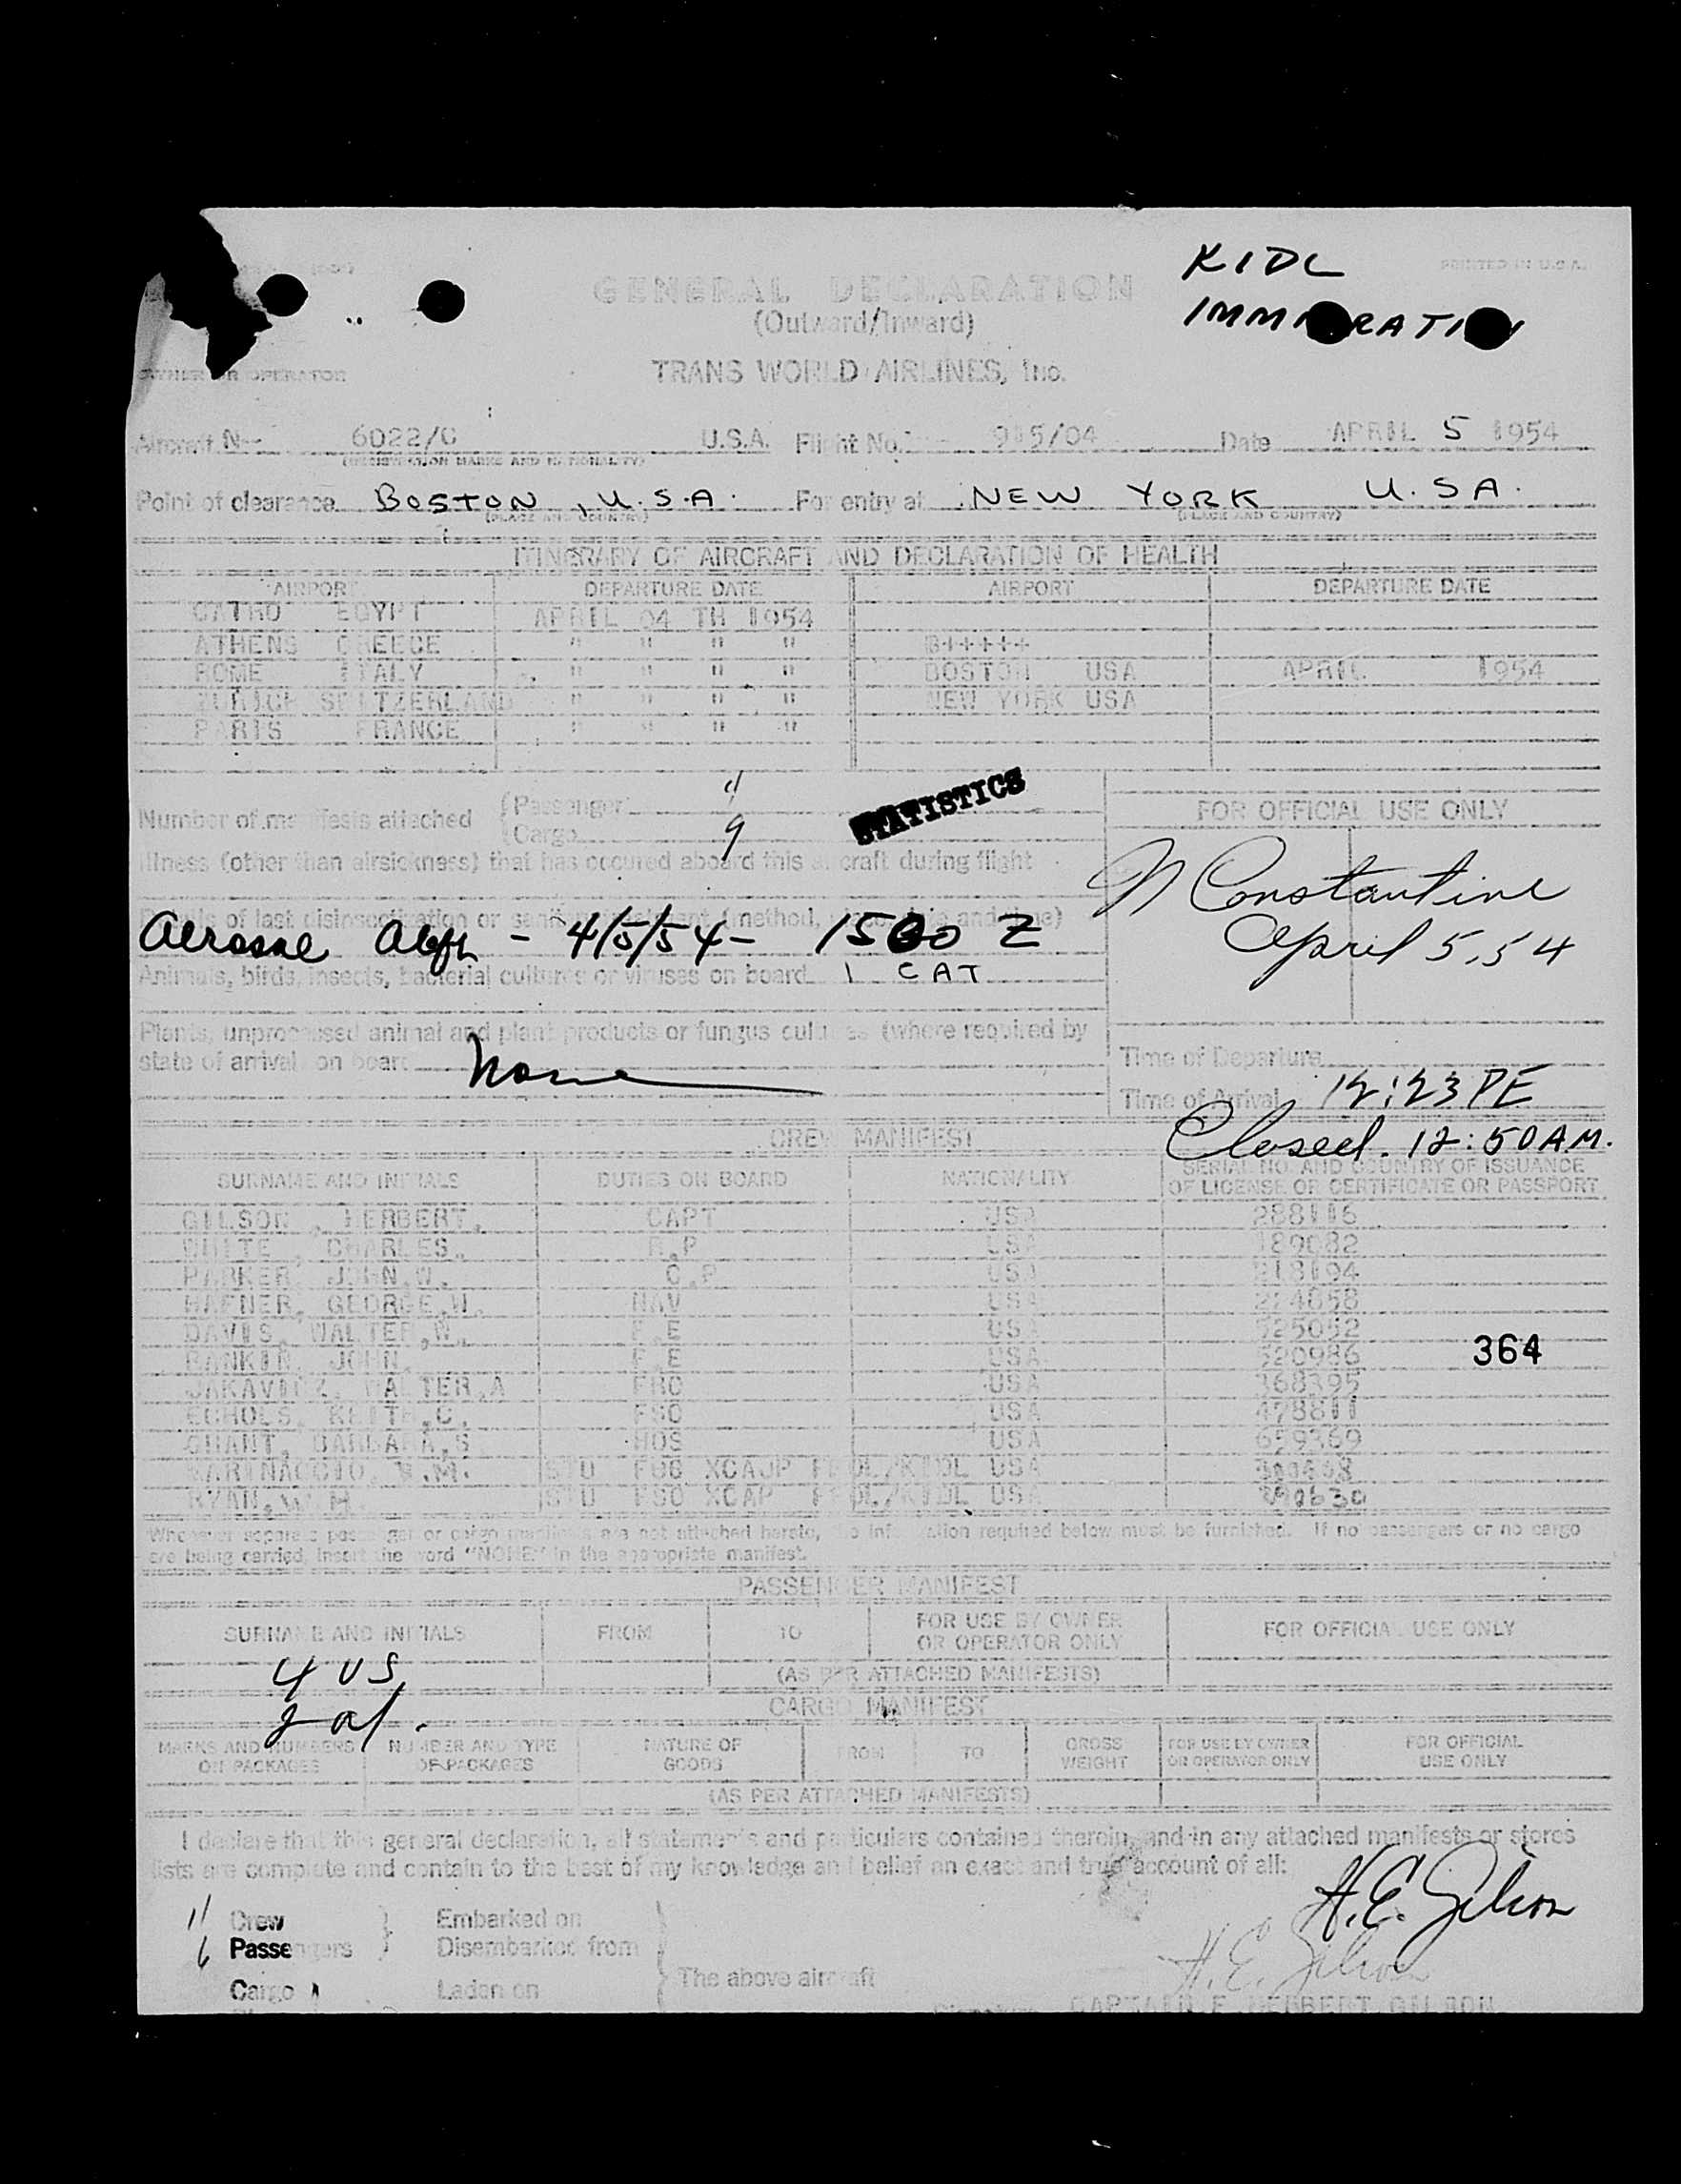 KIDL
PRINTED IN U.S.A.
GENERAL DECLARATION
(Outward/Inward)
OWNER OR OPERATOR
TRANS WORLD AIRLINES, Inc.
Aircraft 6022/C U.S.A. Flight No. 915/04 Date APRIL 5 1954
(REGISTRATION MARKS AND NATIONALITY)
Point of clearance BOSTON, U.S.A. For entry at NEW YORK U.S.A.
(PLACE AND COUNTRY) (PLACE AND COUNTRY)
ITINERARY OF AIRCRAFT AND DECLARATION OF HEALTH
AIRPORT DEPARTURE DATE AIRPORT DEPARTURE DATE
CAIRO EGYPT APRIL 04 TH 1954
ATHENS GREECE " " " " B+++++
ROME ITALY " " " " BOSTON USA APRIL 1954
ZURICH SWITZERLAND " " " " NEW YORK USA
PARIS FRANCE " " " "
Number of manifests attached (Passenger 4
(Cargo 9
STATISTICS
FOR OFFICIAL USE ONLY
Illness (other than airsickness) that has occured aboard this aircraft during flight
N Constantine
April 5, 54
Details of last disinsectization or (method, and time)
4/5/54 - 1500 Z
Animals, birds, insects, bacterial cultures or viruses on board 1 CAT
Plants, unprocessed animal and plant products or fungus cultures (where required by
state of arrival on board None
Time of Departure
Time of Arrival 12:23 PE
Closed. 12:50 A.M.
CREW MANIFEST
SURNAME AND INITIALS DUTIES ON BOARD NATIONALITY SERIAL NO. AND COUNTRY OF ISSUANCE
OF LICENSE OR CERTIFICATE OR PASSPORT
GILSON, HERBERT, CAPT USA 288116
WHITE, CHARLES, R.P USA 189082
PARKER, JOHN.W. C.P USA 218194
HAFNER, GEORGE.W. NAV USA 274858
DAVIS, WALTER.W. F.E USA 525052
RANKIN, JOHN. F.E USA 520986
364
WALTER.A FRO USA 368395
ECHOLS, KEITH.C. FSO USA 478811
GRANT, BARBARA.S HOS USA 659369
MARINACCIO, STU USA
RYAN.W.H. STU FSO XCAP USA
Whenever separate passenger or cargo manifests are not attached hereto, the information required below must be furnished. If no passengers or no cargo
are being carried, insert the word "NONE" in the appropriate manifest.
PASSENGER MANIFEST
SURNAME AND INITIALS FROM TO FOR USE BY OWNER
OR OPERATOR ONLY FOR OFFICIAL USE ONLY
4 US
(AS PER ATTACHED MANIFESTS)
2 al.
CARGO MANIFEST
MARKS AND NUMBERS
ON PACKAGES NUMBER AND TYPE
OF PACKAGES NATURE OF
GOODS FROM TO GROSS
WEIGHT FOR USE BY OWNER
OR OPERATOR ONLY FOR OFFICIAL
USE ONLY
(AS PER ATTACHED MANIFESTS)
I declare that this general declaration, all statements and particulars contained therein, and in any attached manifests or stores
lists are complete and contain to the best of my knowledge and belief an exact and true account of all:
H.E. Gilson
11 Crew Embarked on
6 Passengers Disembarked from
H.E. Gilson
Cargo Laden on The above aircraft
CAPTAIN F. HERBERT GILSON